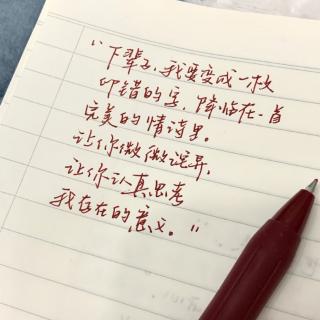 “下辈子，我要变成一枚
印错的字，降临在一首
完美的情诗里。
让你微微诧异，
让你认真思考
我存在的意义。”